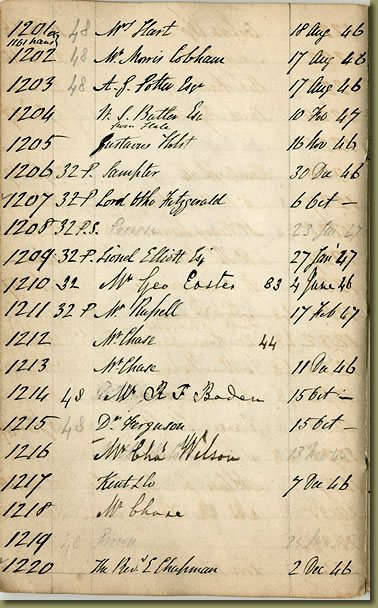 1201 48 Mrs Hart 18 Aug 46
1202 48 Mr Morris Cobham 17 Aug 46
1203 48 A. J. Potter Esqr 17 Aug 46
1204 W. S. Butler Esq 10 Feb 47
1205 Gustavus Holst 16 Nov 46
1206 32 P. Sampter 30 Dec 46
1207 32 P Lord Otho Fitzgerald 6 Oct —
1208 32 P.S. 23 Jan 47
1209 32 P. Lionel Elliott Esq 27 Jany 47
1210 32 Mr Geo Easter 83 4 June 46
1211 32 P Mr Russell 17 Feb 47
1212 Mr Chase 44
1213 Mr Chase 11 Dec 46
1214 48 Mr R F Boden 15 Oct —
1215 48 Dr Ferguson 15 Oct —
1216 Mr Chas Wilson
1217 Kent & Co 7 Dec 46
1218 Mr Chase
1219 48
1220 The Revd E Chapman 2 Dec 46